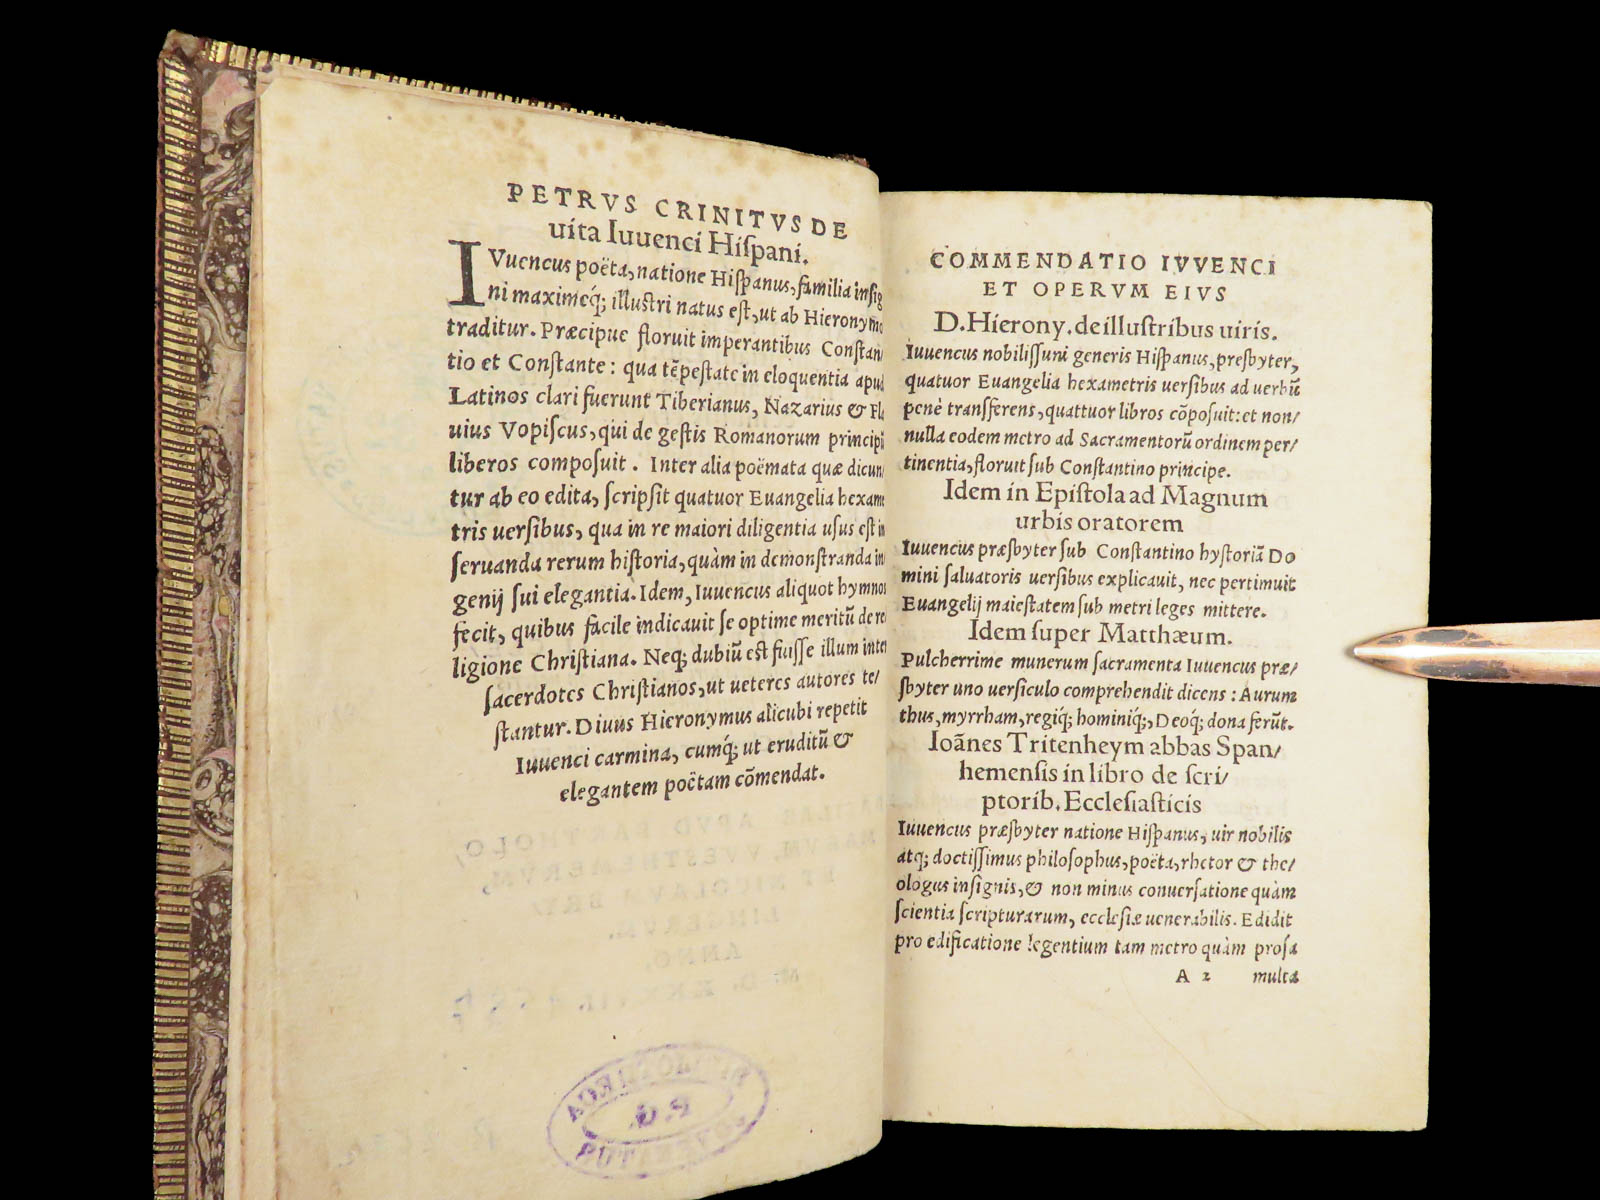 PETRVS CRINITVS DE
uita Iuuenci Hiſpani.
IVuencus poëta, natione Hiſpanus, familia inſig
ni maximeq́; illuſtri natus eſt, ut ab Hieronymo
traditur. Præcipue floruit imperantibus Conſtan
tio et Conſtante: qua tẽpeſtate in eloquentia apud
Latinos clari fuerunt Tiberianus, Nazarius & Fla
uius Vopiſcus, qui de geſtis Romanorum principũ
liberos compoſuit. Inter alia poëmata quæ dicun
tur ab eo edita, ſcripſit quatuor Euangelia hexame
tris uerſibus, qua in re maiori diligentia uſus eſt in
ſeruanda rerum hiſtoria, quàm in demonſtranda in
genij ſui elegantia. Idem, Iuuencus aliquot hymnos
fecit, quibus facile indicauit ſe optime meritũ de re
ligione Chriſtiana. Neq; dubiũ eſt fuiſſe illum inter
ſacerdotes Chriſtianos, ut ueteres autores te/
ſtantur. Diuus Hieronymus alicubi repetit
Iuuenci carmina, cumq́; ut eruditũ &
elegantem poëtam cõmendat.
BIBLIOTHECA
P.G.
COMMENDATIO IVVENCI
ET OPERVM EIVS
D. Hierony. de illuſtribus uiris.
Iuuencus nobiliſſimi generis Hiſpanus, preſbyter,
quatuor Euangelia hexametris uerſibus ad uerbũ
penè transferens, quattuor libros cõpoſuit: et non/
nulla eodem metro ad Sacramentorũ ordinem per/
tinentia, floruit ſub Conſtantino principe.
Idem in Epiſtola ad Magnum
urbis oratorem
Iuuencus præſbyter ſub Conſtantino hyſtoriã Do
mini ſaluatoris uerſibus explicauit, nec pertimuit
Euangelij maieſtatem ſub metri leges mittere.
Idem ſuper Matthæum.
Pulcherrime munerum ſacramenta Iuuencus præ/
ſbyter uno uerſiculo comprehendit dicens: Aurum
thus, myrrham, regiq́; hominiq́;, Deoq́; dona ferũt.
Ioãnes Tritenheym abbas Span/
hemenſis in libro de ſcri/
ptorib. Eccleſiaſticis
Iuuencus præſbyter natione Hiſpanus, uir nobilis
atq; doctiſſimus philoſophus, poëta, rhetor & the/
ologus inſignis, & non minus conuerſatione quàm
ſcientia ſcripturarum, eccleſiæ uenerabilis. Edidit
pro edificatione legentium tam metro quàm proſa
A 2 multa